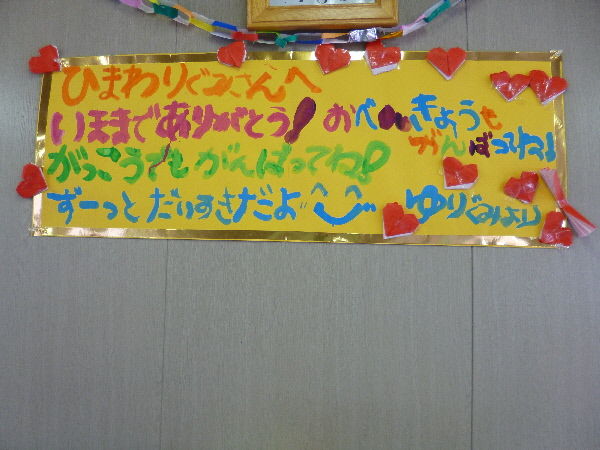 ひまわりぐみさんへ
いままでありがとう! おべんきょうも
がんばってね!
がっこうでもがんばってね!
ずーっとだいすきだよ ゆりぐみより